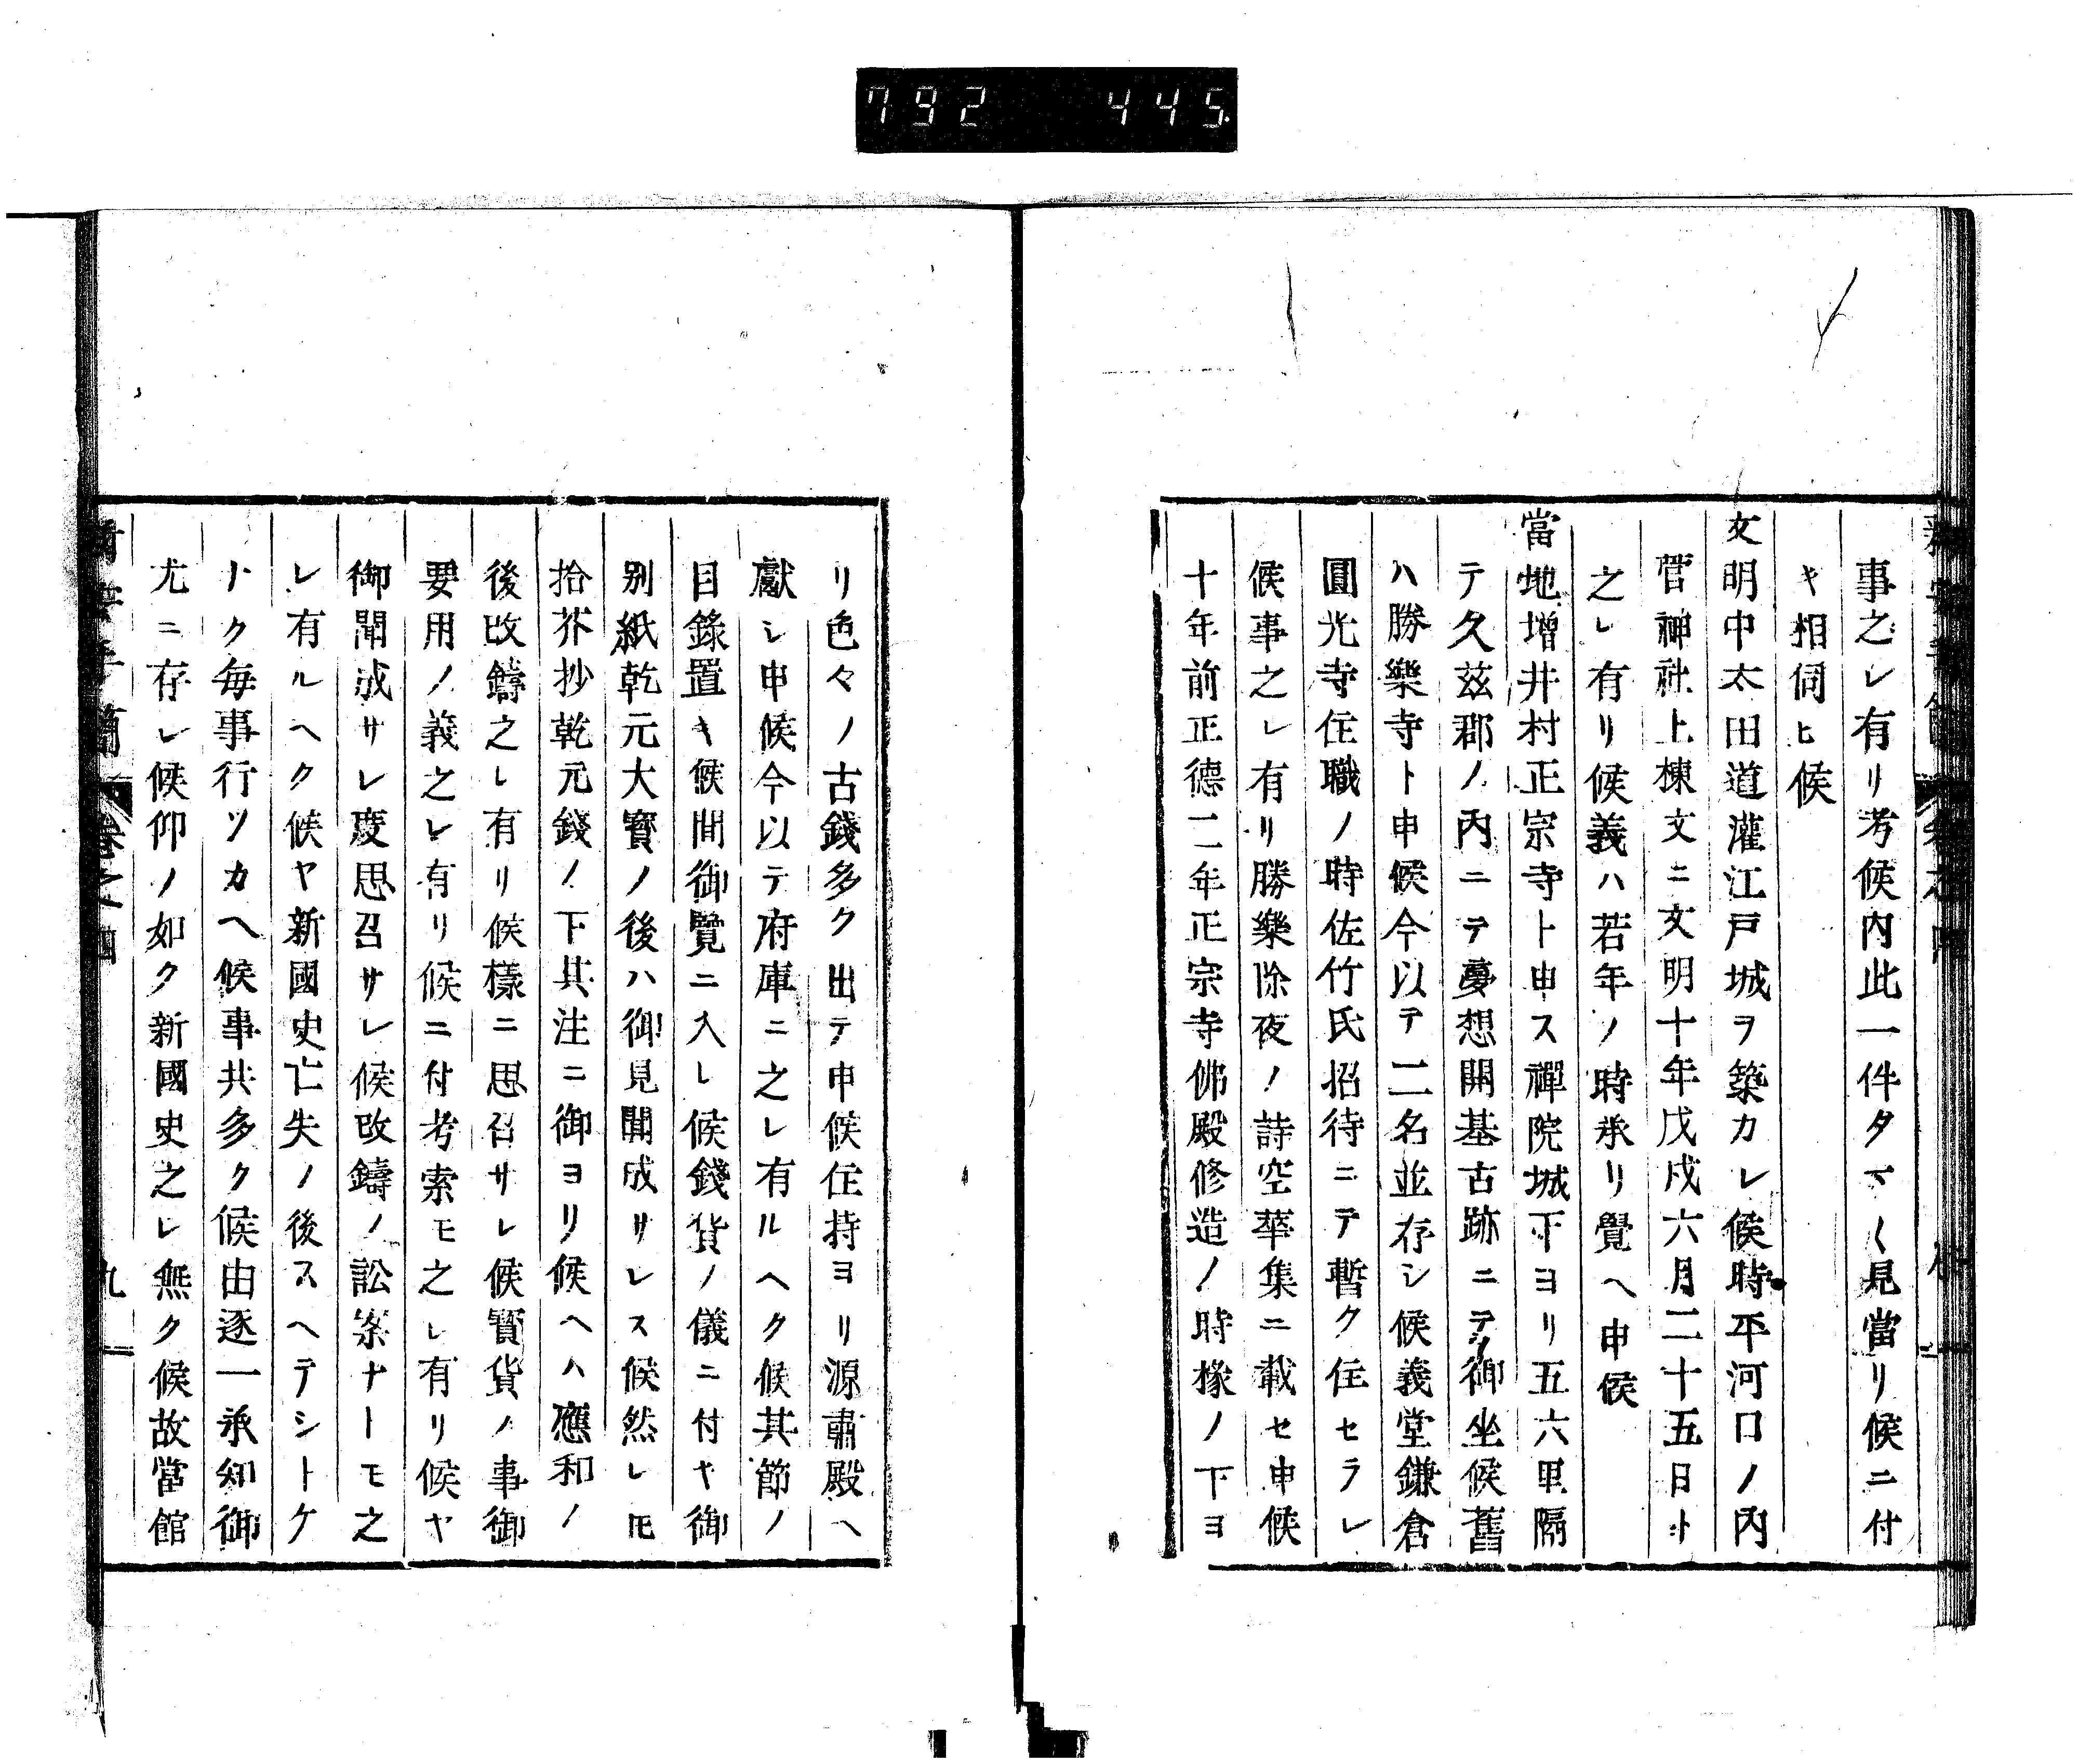 792 445
事之レ有リ考候内此一件タマ〱見當リ候ニ付
キ相伺ヒ候
文明中太田道灌江戸城ヲ築カレ候時平河口ノ内
菅神社上棟文ニ文明十年戊戌六月二十五日ト
之レ有リ候義ハ若年ノ時承リ覺ヘ申候
當地增井村正宗寺ト申ス禪院城下ヨリ五六里隔
テ久茲郡ノ內ニテ夢想開基古跡ニテ御坐候舊
ハ勝樂寺ト申候今以テ二名並存シ候義堂鎌倉
圓光寺住職ノ時佐竹氏招待ニテ暫ク住セラレ
候事之レ有リ勝樂除夜ノ詩空華集ニ載セ申候
十年前正德二年正宗寺佛殿修造ノ時椽ノ下ヨ
リ色々ノ古錢多ク出テ申候住持ヨリ源肅殿ヘ
獻シ申候今以テ府庫ニ之レ有ルヘク候其節ノ
目錄置キ候間御覽ニ入レ候錢貨ノ儀ニ付キ御
別紙乾元大寳ノ後ハ御見聞成サレス候然レ𪜈
拾芥抄乾元錢ノ下其注ニ御ヨリ候ヘハ應和ノ
後改鑄之レ有リ候樣ニ思召サレ候寳貨ノ事御
要用ノ義之レ有リ候ニ付考索モ之レ有リ候ヤ
御聞成サレ度思召サレ候改鑄ノ訟案ナトモ之
レ有ルヘク候ヤ新國史亡失ノ後スヘテシトケ
トク毎事行ツカヘ候事共多ク候由逐一承知御
尤ニ存レ候仰ノ如ク新國史之レ無ク候故當館
卷之四
九